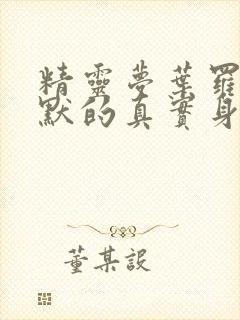 精靈夢葉羅
默的真實身
董某說